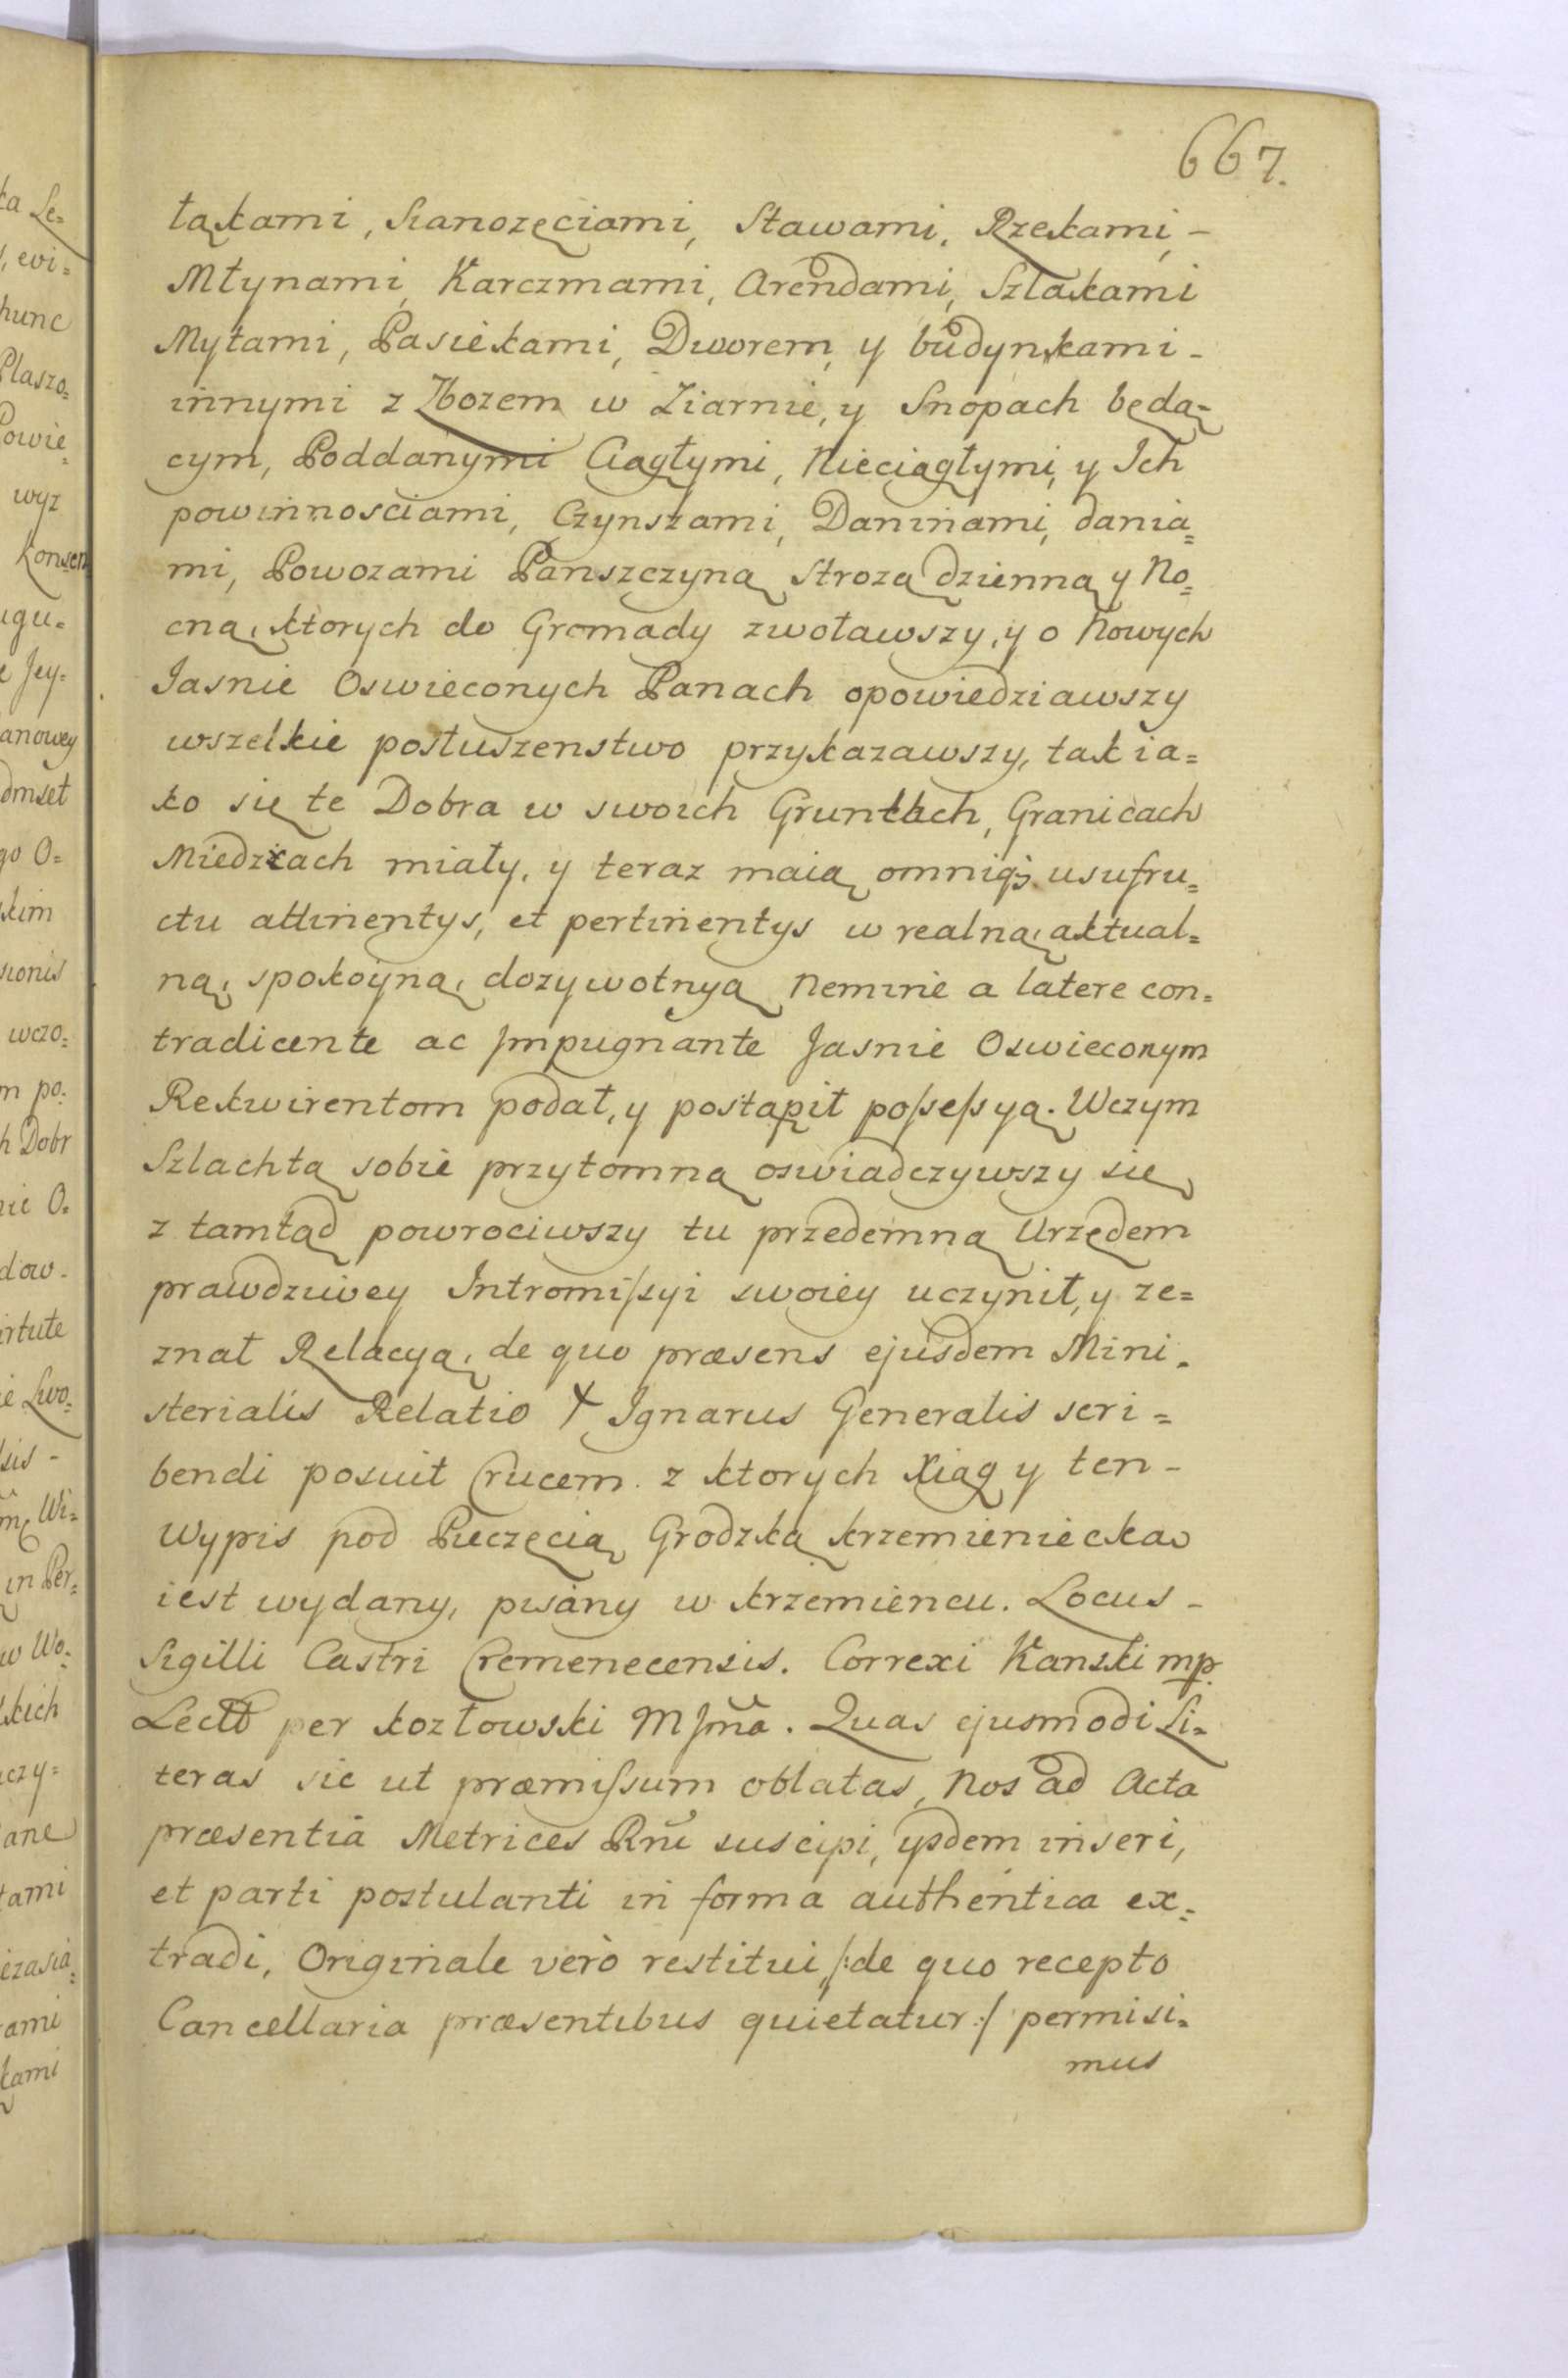 667.
łąkami, Sianozęciami, Stawami, Rzekami, -
Młynami, Karczmami, Arendami, Szlakami
Mytami, Pasiekami, Dworem, y budynkami -
innymi z Zbozem w Ziarnie, y Snopach będą=
cym, Poddanymi Ciągłymi, Nieciągłymi, y Ich
powinnosciami, Czynszami, Daninami, dania=
mi, Powozami Panszczyną Strozą dzienną y No=
cną, ktorych do Gromady zwoławszy, y o Nowych
Jasnie Oswieconych Panach opowiedziawszy
wszelkie posłuszenstwo przykazawszy, tak ia=
ko się te Dobra w swoich Gruntach, Granicach
Miedzach miały, y teraz maią omniq; usufru=
ctu attinentys, et pertinentys w realną, aktual=
ną, spokoyną, dozywotnyą Nemine a latere con=
tradicente ac Jmpugnante Jasnie Oswieconym
Rekwirentom podał, y postąpił possessyą. Wczym
Szlachtą sobie przytomną oswiadczywszy się
z tamtąd powrociwszy tu przedemną Urzędem
prawdziwey Intromissyi swoiey uczynił, y ze=
znał Relacyą, de quo præsens ejusdem Mini=
sterialis Relatio + Ignarus Generalis scri=
bendi posuit Crucem. z ktorych Xiąg y ten -
Wypis pod Pieczęcią Grodzką krzemieniecką
iest wydany, pisany w krzemiencu. Locus -
Sigilli Castri Cremenecensis. Correxi Kanski mp.
Lectt per kozłowski M Jmã. Quas ejusmodi Li=
teras sic ut præmissum oblatas, Nos ad Acta
præsentia Metrices Rni suscipi, ysdem inseri,
et parti postulanti in forma authentica ex=
tradi, Originale verò restitui /:de quo recepto
Cancellaria præsentibus quietatur:/ permisi=
mus